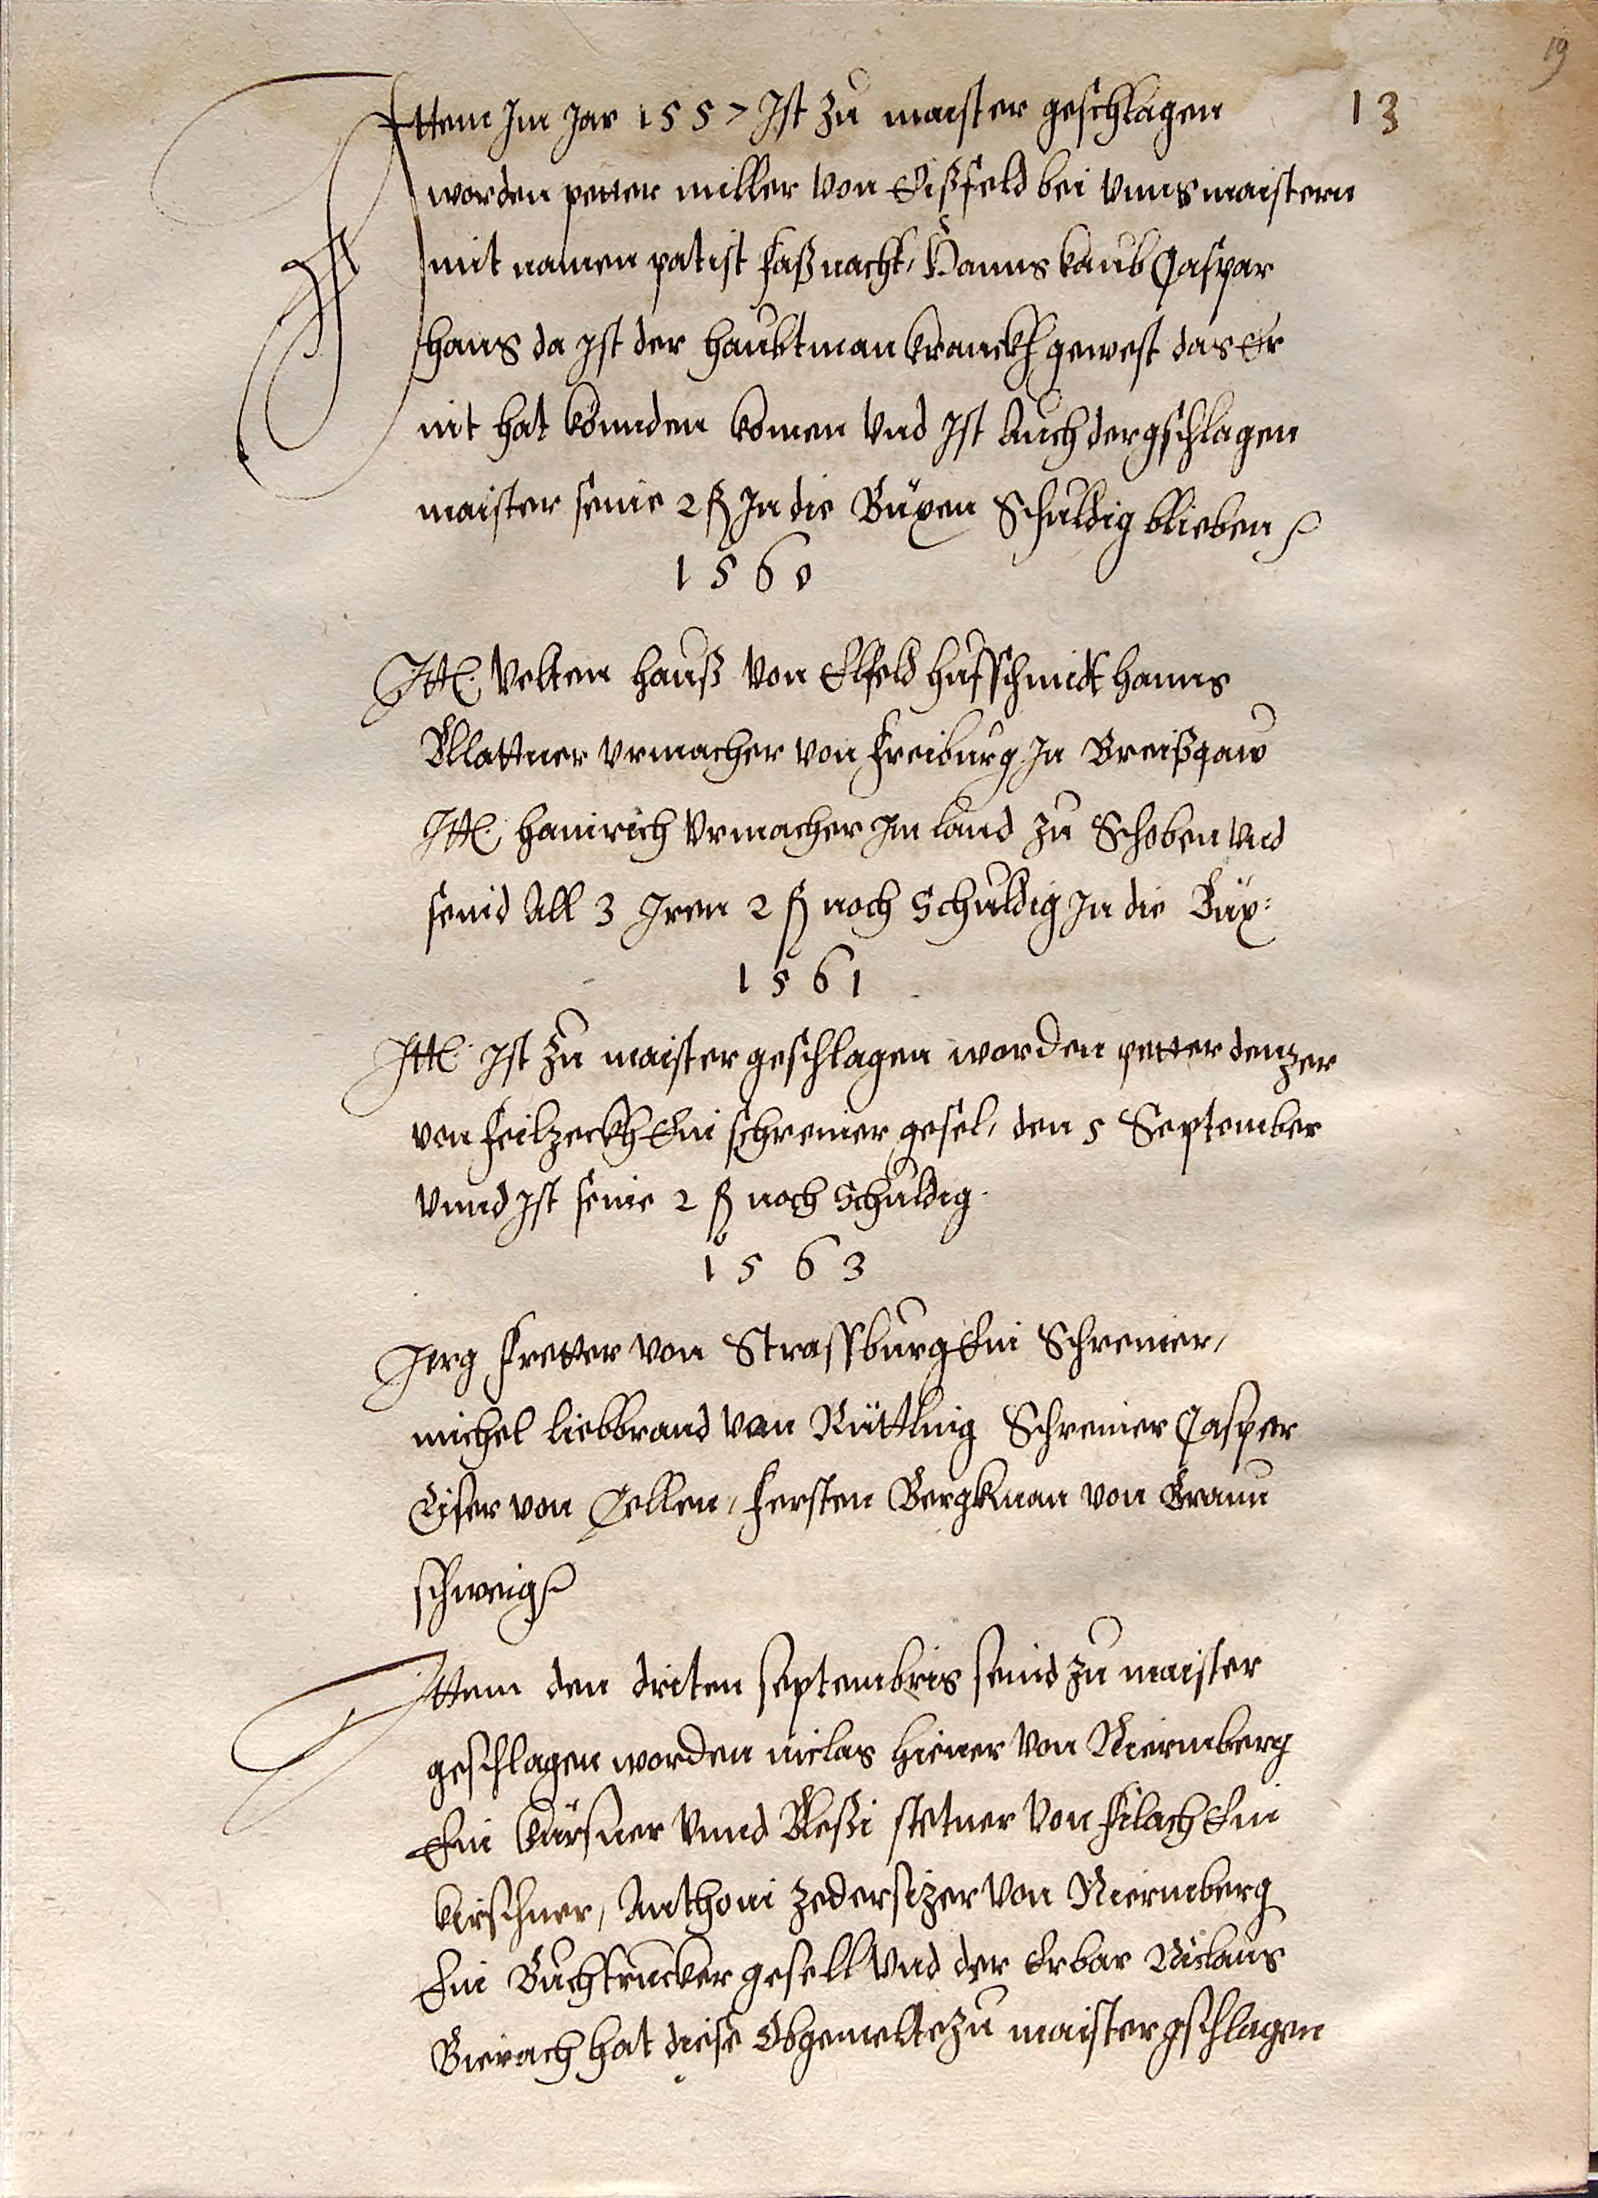 19
13
Ittem Im Jar 1557 Ist zu maister geschlagen
worden petter miller von Eißfeld bei vnns maistern
mit namen patist faßnacht, Hanns kaub Caspar
hans da Ist der haubtman kranckh gewest das Er
nit hat könnden komen vnd Ist Auch der gschlagen
maister seine 2 ß In die Büxen Schuldig blieben
1560
Itt. velten hauß von Elfeld hufschmidt hanns
Blattner vrmacher von freiburg In Breißgaw
Itt. hainrich vrmacher Im land zu Schoben vnd
seind All 3 Iren 2 ß noch Schuldig In die Büx:
1561
Itt. Ist zu maister geschlagen worden petter denzer
von feilzeckh Ein schreiner gesel, den 5 September
vnnd Ist seine 2 ß noch Schuldig.
1563
Jerg fretter von Strassburg Ein Schreiner,
michel liebbrand von Rüttling Schreiner Casper
Eiser von Cellen, kersten Bergkman von Braun
schweig
Ittem den driten septembris seind zu maister
geschlagen worden niclas hiener von Niernberg
Ein kürsner vnnd Blesi stetner von filach Ein
kirschner, Anthoni zedersizer von Niernberg
Ein Buchtrucker gesell vnd der Erbar Niclaus
Bierach hat diese Obgemelte zu maister gschlagen